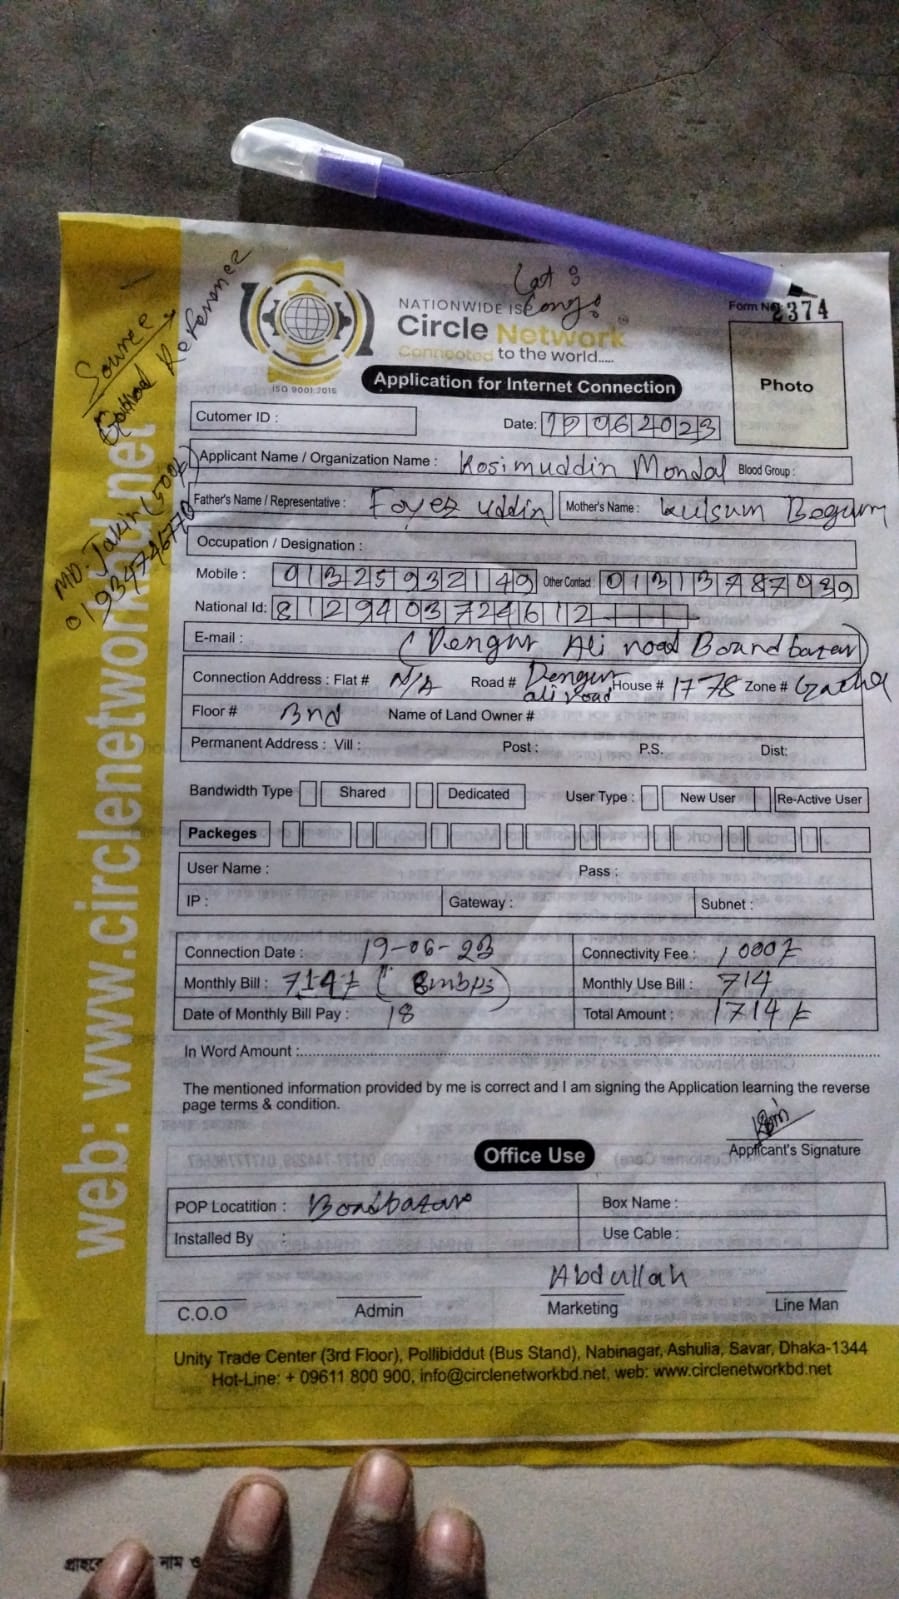 Source
Reference
MD. Jakir (500৳)
01934746770
Lat :
Long :
NATIONWIDE IS
Circle Network
Connected to the world.....
ISO 9001:2015
Form No 2374
Application for Internet Connection
Photo
Cutomer ID :
Date: 19062023
Applicant Name / Organization Name : Kosimuddin Mondal Blood Group :
Father's Name / Representative : Foyez uddin Mother's Name : kulsum Begum
Occupation / Designation :
Mobile : 01325932149 Other Contact 01313787939
National Id: 8129403724612
E-mail : (Dengur Ali road Boardbazar)
Connection Address : Flat # N/A Road # Dengur ali road House # 1778 Zone #
Floor # 3nd Name of Land Owner #
Permanent Address : Vill : Post : P.S. Dist:
Bandwidth Type Shared Dedicated User Type : New User Re-Active User
Packeges
User Name : Pass :
IP : Gateway : Subnet :
Connection Date : 19-06-23 Connectivity Fee : 1000৳
Monthly Bill : 714৳ ( 8mbps) Monthly Use Bill : 714
Date of Monthly Bill Pay : 18 Total Amount : 1714৳
In Word Amount :
The mentioned information provided by me is correct and I am signing the Application learning the reverse
page terms & condition.
Applicant's Signature
Office Use
POP Locatition : Boadbazar Box Name :
Installed By : Use Cable :
Abdullah
C.O.O Admin Marketing Line Man
Unity Trade Center (3rd Floor), Pollibiddut (Bus Stand), Nabinagar, Ashulia, Savar, Dhaka-1344
Hot-Line: + 09611 800 900, info@circlenetworkbd.net, web: www.circlenetworkbd.net
web: www.circlenetworkbd.net
নাম ও